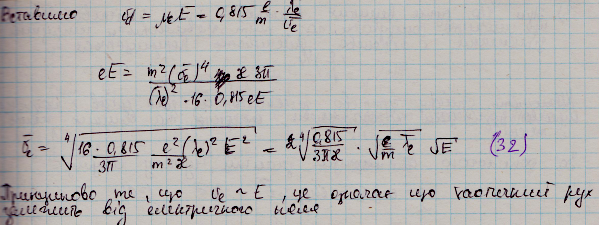 Вставимо v̄_d = μ_e E = 0,815 e/m · λ̄_e / v̄_e
eE = m²(v̄_e)⁴ æ 3π / (λ̄_e)² · 16 · 0,815 eE
v̄_e = ⁴√(16 · 0,815 / 3π · e²(λ̄_e)² E² / m² æ) = 2 ⁴√(0,815 / 3πæ) · √(e/m λ̄_e) √E (32)
Принципово те, що v_e ~ E, це означає що хаотичний рух
залежить від електричного поля